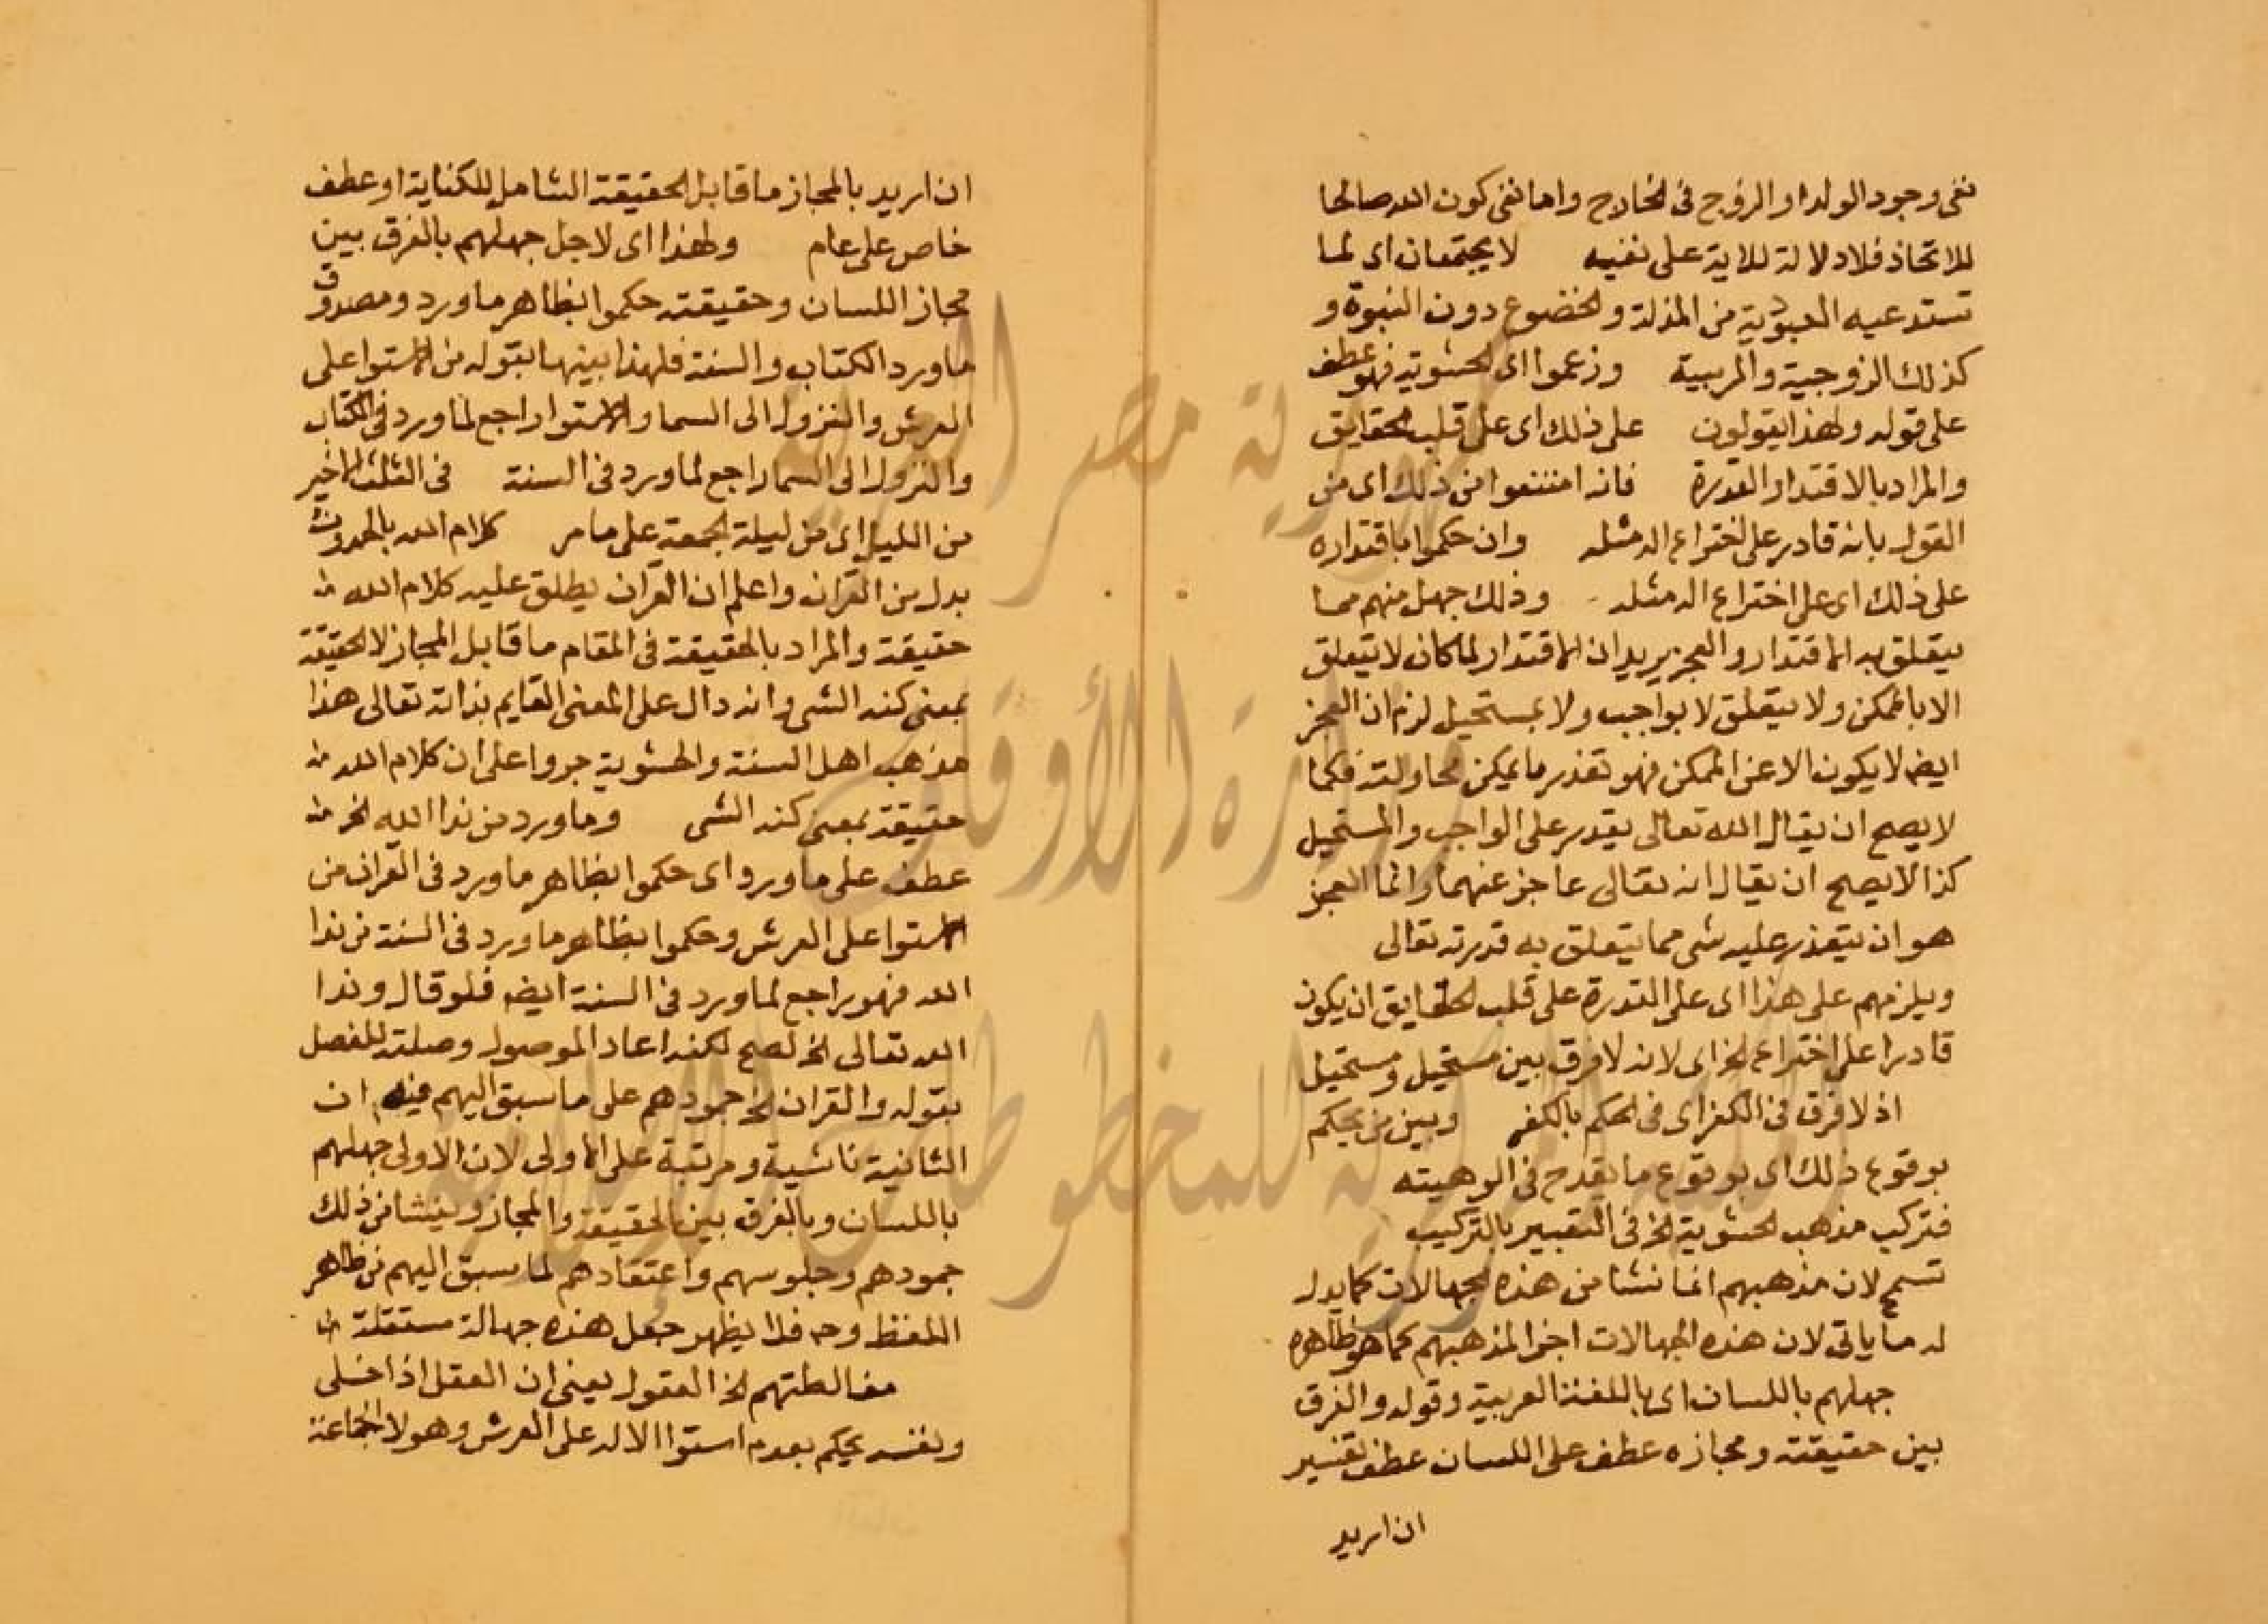 نفى وجود الولد او الزوج فى الخارج واما نفى كون الله صالحا
للاتخاذ فلا دلالة للاية على نفيه لا يجتمعان اى لما
تستدعيه العبودية من المذلة والخضوع دون النبوة و
كذلك الزوجية والمربية وزعموا اى الحشوية فهو عطف
على قوله ولهذا يقولون على ذلك اى على قلب الحقايق
والمراد بالاقتدار القدرة فان امتنعوا من ذلك اى من
القول بانه قادر على اختراع اله مثله وان حكموا باقتداره
على ذلك اى على اختراع اله مثله وذلك جهل منهم مما
يتعلق به الاقتدار والعجز يريد ان الاقتدار لما كان لا يتعلق
الا بالممكن ولا يتعلق لا بواجب ولا بمستحيل لزم ان العجز
ايضا لا يكون الا عن الممكن فهو تعذر ما يمكن محاولته فكما
لا يصح ان يقال الله تعالى يقدر على الواجب والمستحيل
كذا لا يصح ان يقال انه تعالى عاجز عنهما وانما العجز
هو ان يتعذر عليه شى مما يتعلق به قدرته تعالى
ويلزمهم على هذا اى على القدرة على قلب الحقايق ان يكون
قادرا على اختراع الخ اى لانه لا فرق بين مستحيل ومستحيل
اذ لا فرق فى الكفر اى فى الحكم بالكفر وبين من يحكم
بوقوع ذلك اى بوقوع ما يقدح فى الوهيته
فتركب مذهب الحشوية الخ فى التعبير بالتركيب
تسمح لان مذهبهم انما نشا من هذه الجهالات كما يدل
له ما ياتى لان هذه الجهالات اجزا لمذهبهم كما هو ظاهره
جهلهم باللسان اى باللغة العربية وقوله والفرق
بين حقيقته ومجازه عطف على اللسان عطف تفسير
ان اريد
ان اريد بالمجاز ما قابل الحقيقة الشامل للكناية او عطف
خاص على عام ولهذا اى لاجل جهلهم بالفرق بين
مجاز اللسان وحقيقته حكموا بظاهر ما ورد ومصدوق
ما ورد الكتاب والسنة فلهذا بينها بقوله من الاستوا على
العرش والنزول الى السما والاستوا راجع لما ورد فى الكتاب
والنزول الى السما راجع لما ورد فى السنة فى الثلث الاخير
من الليل اى من ليلة الجمعة على ما مر كلام الله بالحدوث
بدل من القرآن واعلم ان القرآن يطلق عليه كلام الله
حقيقة والمراد بالحقيقة فى المقام ما قابل المجاز لا الحقيقة
بمعنى كنه الشى وانه دال على المعنى القايم بذاته تعالى هذا
مذهب اهل السنة والحشوية جروا على ان كلام الله
حقيقة بمعنى كنه الشى وما ورد من ندا الله الخ
عطف على ما ورد اى حكموا بظاهر ما ورد فى القرآن من
الاستوا على العرش وحكموا بظاهر ما ورد فى السنة من ندا
الله فهو راجع لما ورد فى السنة ايضا فلو قال وندا
الله تعالى الخ لصح لكنه اعاد الموصول وصلته للفصل
بقوله والقران الخ جمودهم على ما سبق اليهم فيه ان
الثانية ناشية ومرتبة على الاولى لان الاولى جهلهم
باللسان وبالفرق بين الحقيقة والمجاز وينشا من ذلك
جمودهم وجلوسهم واعتقادهم لما سبق اليهم من ظاهر
اللفظ وح فلا يظهر جعل هذه جهالة مستقلة
مغالطتهم الخ العقول يعنى ان العقل اذا خلى
ونفسه يحكم بعدم استوا الاله على العرش وهولا الجماعة